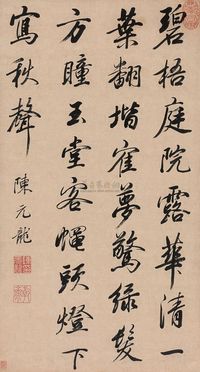 碧梧庭院露華清一
葉翻堦宿夢驚綠髮
方瞳玉堂客幔頭燈下
寫秋聲
陳元龍